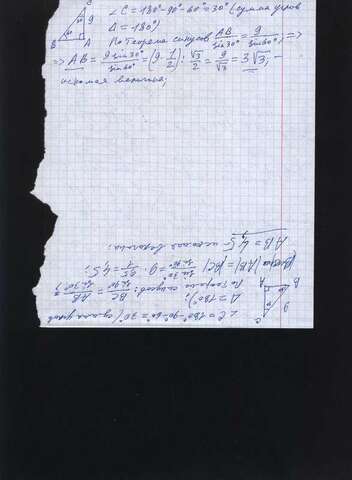 C
9
60°
B
A
∠C = 180°-90°-60° = 30° (сумма углов
Δ = 180°)
По теореме синусов AB/sin30° = 9/sin60° ⇒
⇒ AB = 9 sin30°/sin60° = (9·1/2) : √3/2 = 9/√3 = 3√3; –
искомая величина;
∠C = 180°-90°-60° = 30° (сумма углов
Δ = 180°);
По теореме синусов: BC/sin90° = AB/sin30° ⇒
= 9·1/2 = 4,5;
AB = 4,5 - искомая величина;
C
9
A
B